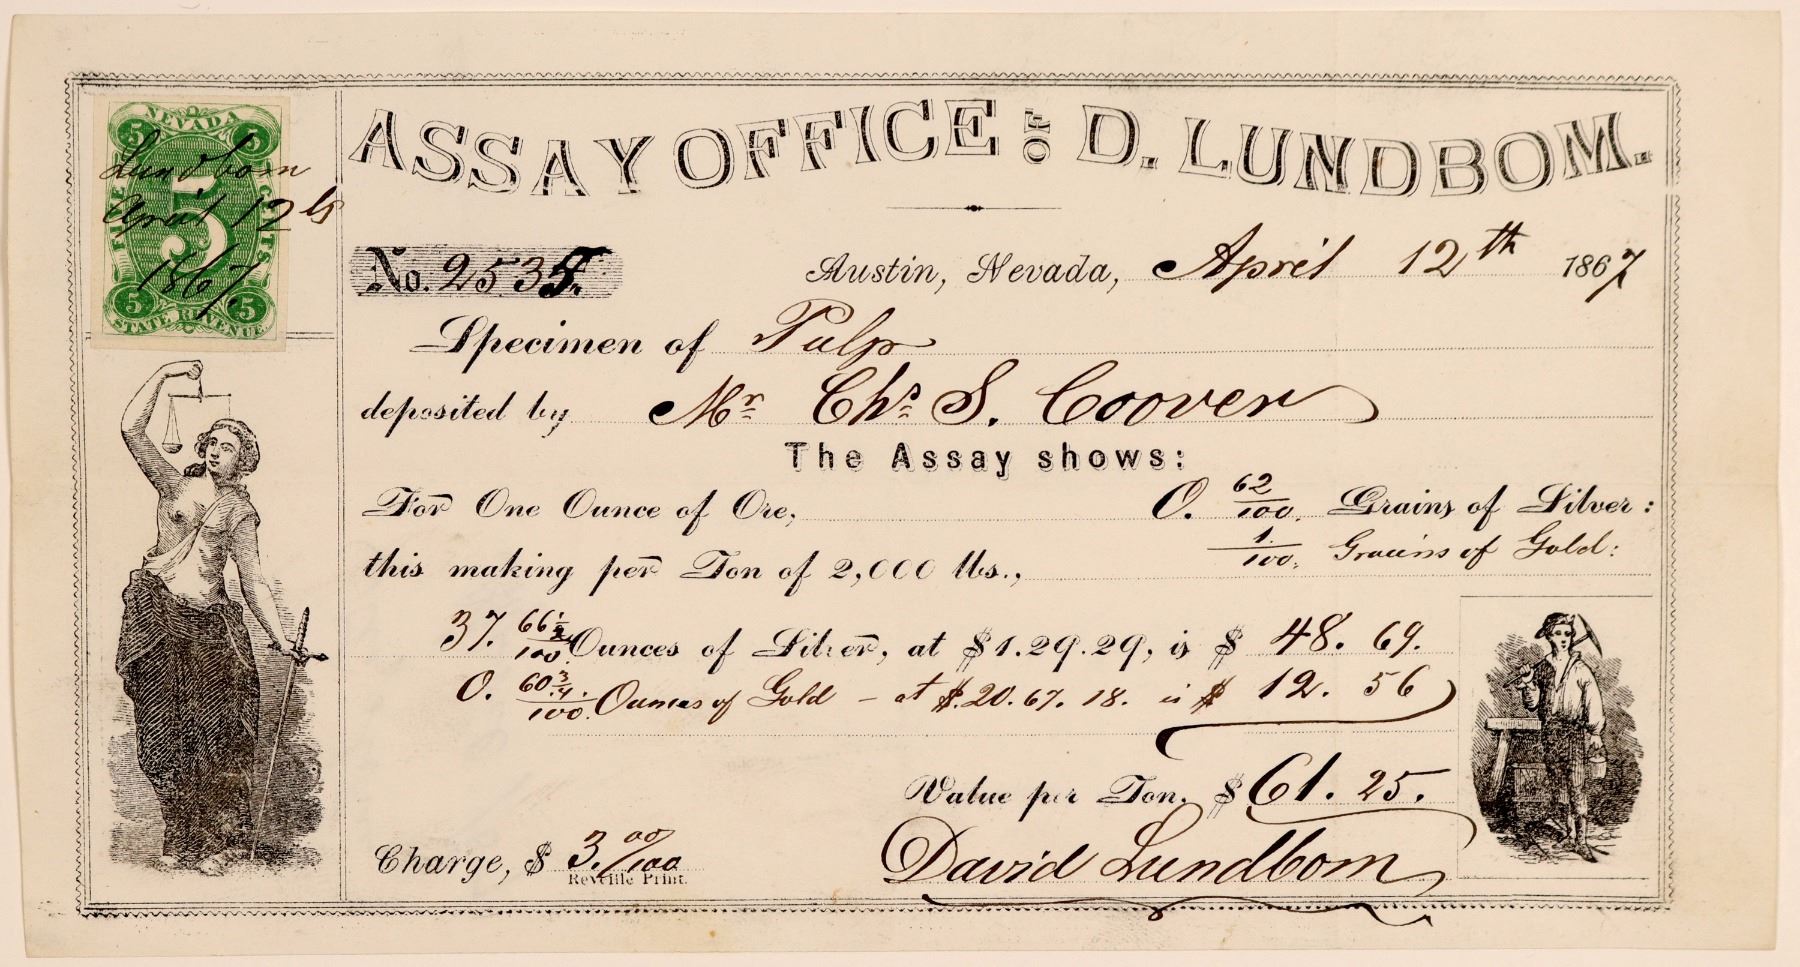 NEVADA
5 5
FIVE 5 CENTS
5 5
STATE REVENUE
Lundbom
April 12th
1867.
ASSAY OFFICE OF D. LUNDBOM.
No. 2535.
Austin, Nevada, April 12th 1867
Specimen of Pulp
deposited by Mr Chs S. Coover
The Assay shows:
For One Ounce of Ore, 0. 62/100. Grains of Silver:
1/100. Grains of Gold:
this making per Ton of 2,000 lbs.,
37. 66 1/2/100 Ounces of Silver, at $1.29.29, is $ 48. 69.
0. 60 3/4/100. Ounces of Gold – at $.20.67.18. is $ 12. 56
Value per Ton, $ 61. 25.
Charge, $ 3. 00/100
David Lundbom
Reveille Print.